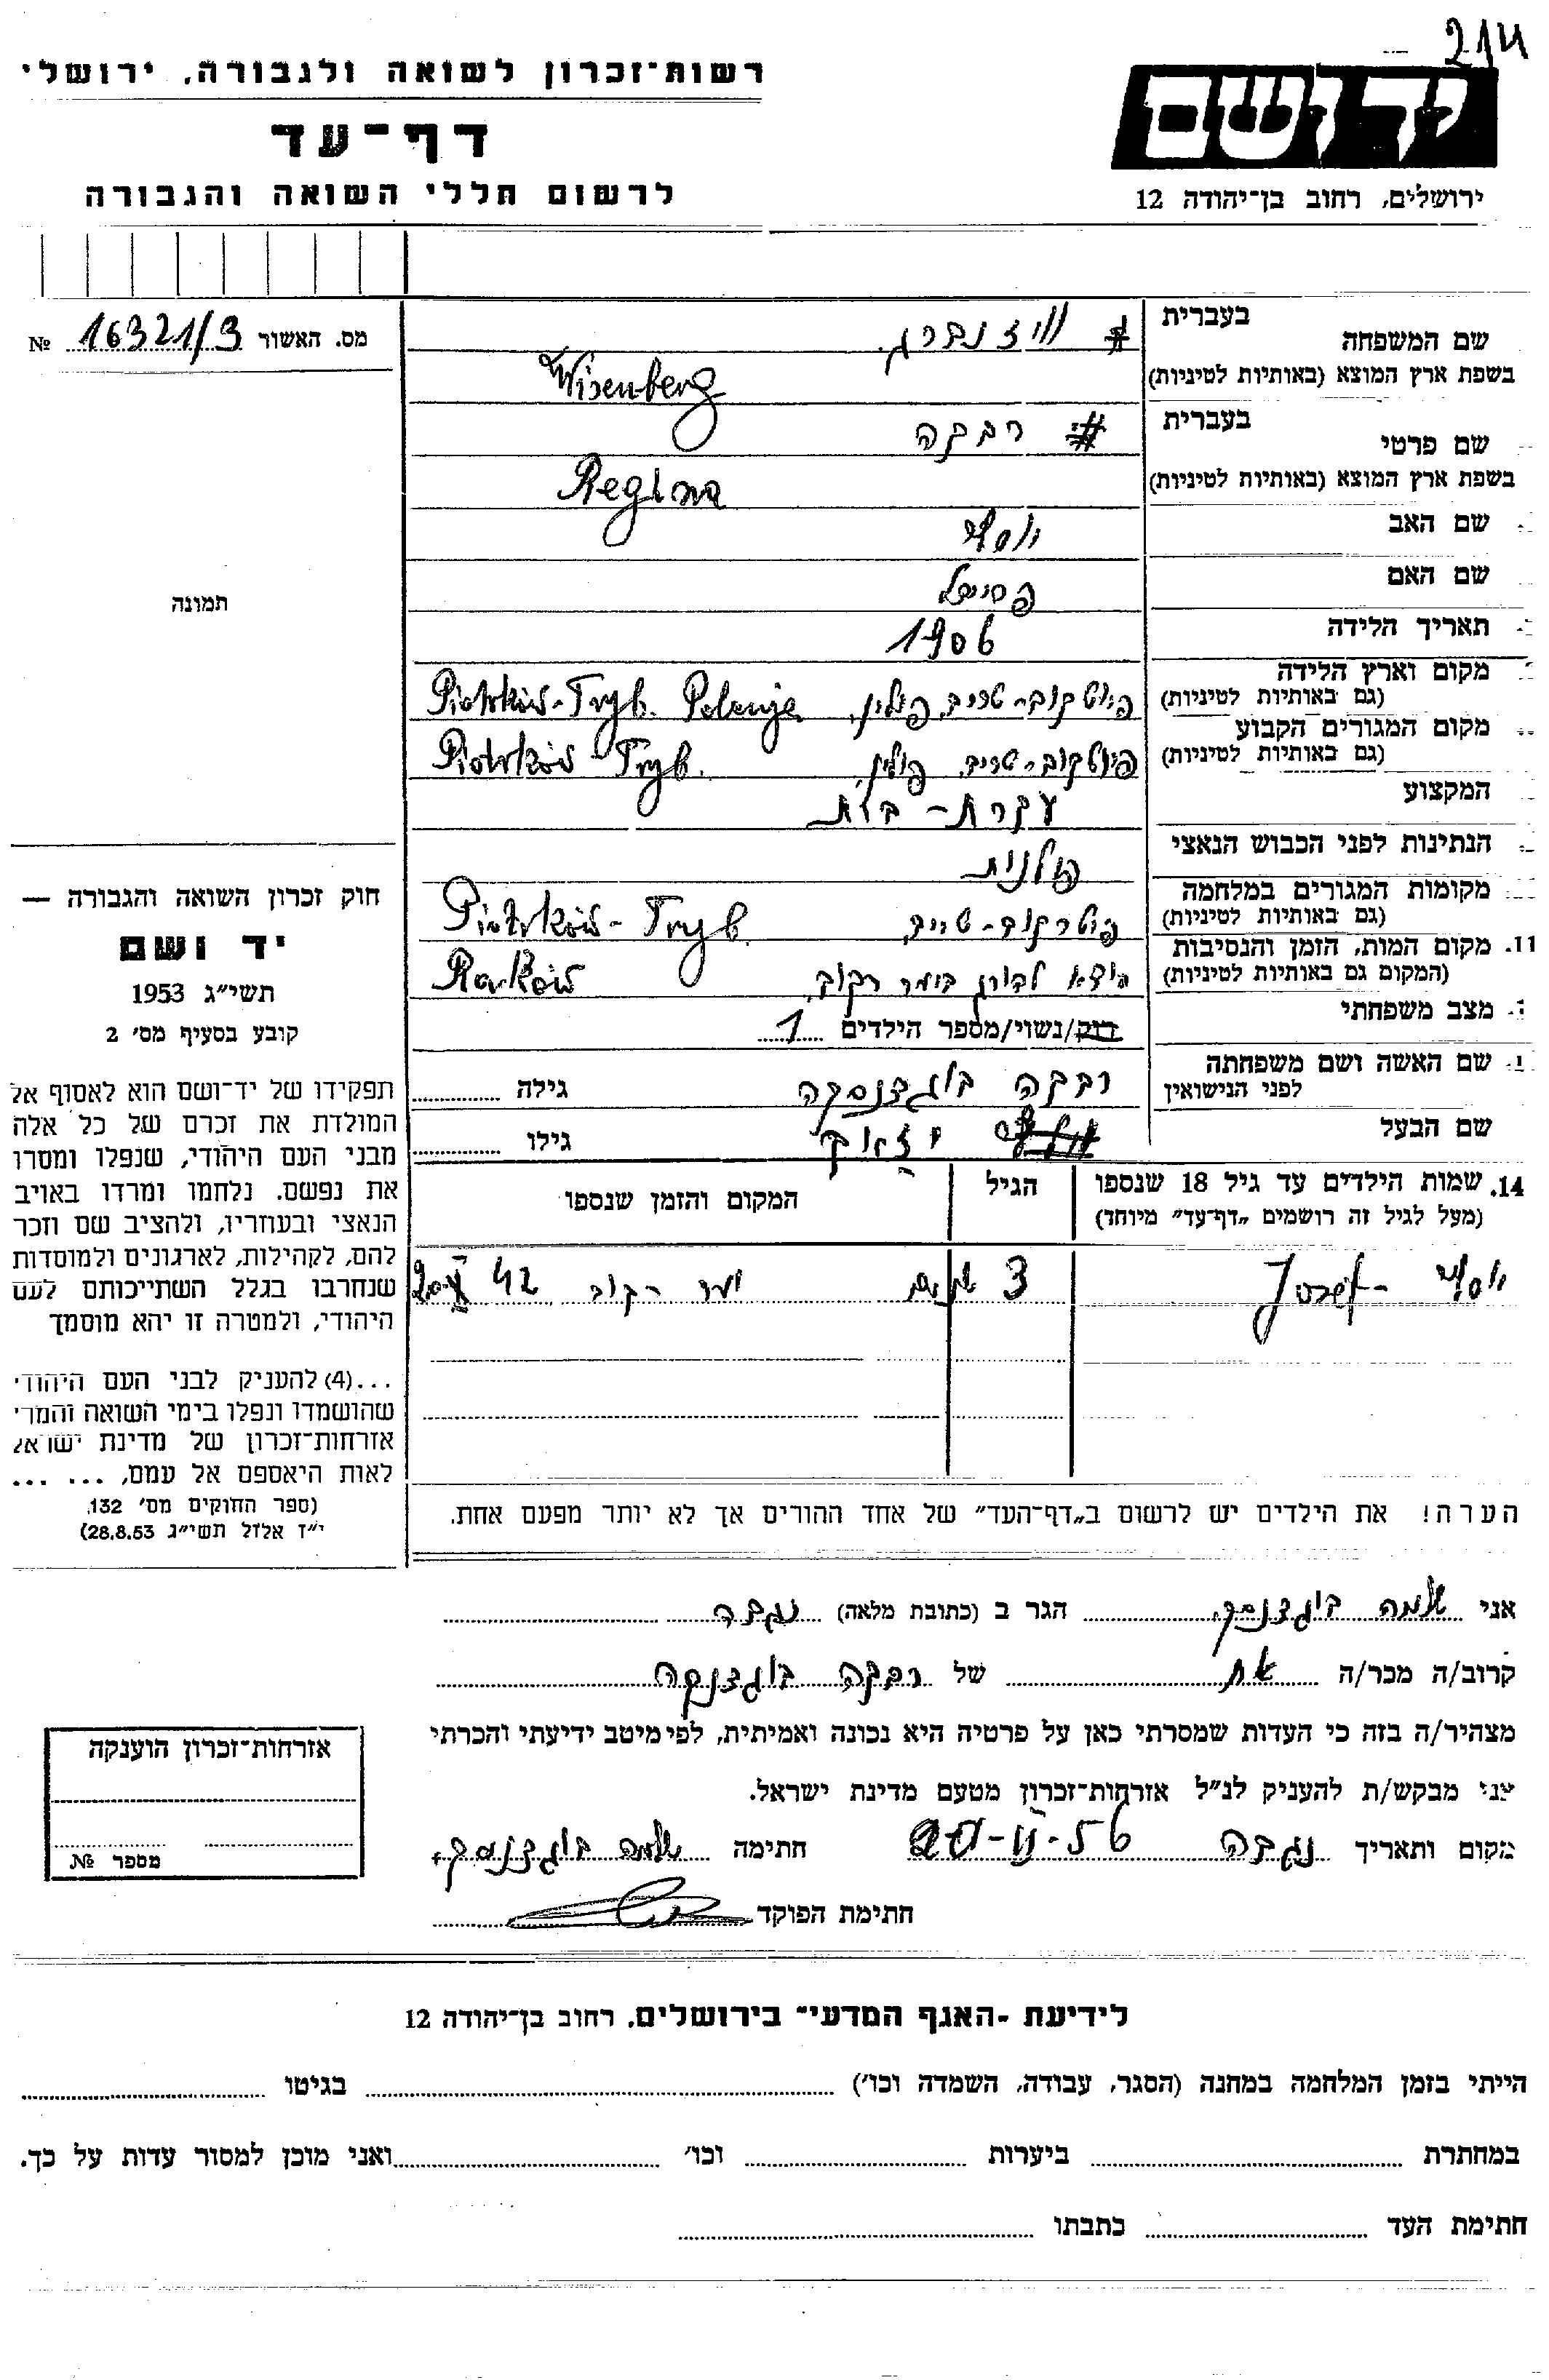 214
רשות־זכרון לשואה ולגבורה, ירושלי
יד ושם
דף־עד
לרשום חללי השואה והגבורה
ירושלים, רחוב בן־יהודה 12
מס. האשור 16321/3 №
שם המשפחה בעברית # וויזנברג
בשפת ארץ המוצא (באותיות לטיניות) Wisenberg
שם פרטי בעברית # רבקה
בשפת ארץ המוצא (באותיות לטיניות) Regina
שם האב יוסף
שם האם
תאריך הלידה 1906
מקום וארץ הלידה (גם באותיות לטיניות) פיוטקוב-טריב. פולין, Piotrków-Tryb. Polanja
מקום המגורים הקבוע (גם באותיות לטיניות) פיוטקוב-טריב. פולין, Piotrków Tryb.
המקצוע עקרת-בית
הנתינות לפני הכבוש הנאצי פולנית
מקומות המגורים במלחמה (גם באותיות לטיניות) Piotrków-Tryb.
11. מקום המות, הזמן והנסיבות (המקום גם באותיות לטיניות) הוצא להורג ביער רקוב, Raków
מצב משפחתי רוק/נשוי/מספר הילדים 1
שם האשה ושם משפחתה לפני הנישואין רבקה בוגצנסקה גילה
שם הבעל יצחק גילו
14. שמות הילדים עד גיל 18 שנספו (מעל לגיל זה רושמים „דף־עד” מיוחד) הגיל המקום והזמן שנספו
יוסף - Józef 3 שנים יער רקוב 42
הערה! את הילדים יש לרשום ב„דף־העד” של אחד ההורים אך לא יותר מפעם אחת.
תמונה
חוק זכרון השואה והגבורה —
יד ושם
תשי״ג 1953
קובע בסעיף מס׳ 2
תפקידו של יד־ושם הוא לאסוף אל
המולדת את זכרם של כל אלה
מבני העם היהודי, שנפלו ומסרו
את נפשם, נלחמו ומרדו באויב
הנאצי ובעוזריו, ולהציב שם וזכר
להם, לקהילות, לארגונים ולמוסדות
שנחרבו בגלל השתייכותם לעם
היהודי, ולמטרה זו יהא מוסמך
...(4) להעניק לבני העם היהודי
שהושמדו ונפלו בימי השואה והמרי
אזרחות־זכרון של מדינת ישראל
לאות היאספם אל עמם, ... ...
(ספר החוקים מס׳ 132,
י״ז אלול תשי״ג 28.8.53)
אני שלמה בוגצנסקי הגר ב (כתובת מלאה) נגבה
קרוב/ה מכר/ה אח של רבקה בוגצנסקה
מצהיר/ה בזה כי העדות שמסרתי כאן על פרטיה היא נכונה ואמיתית, לפי מיטב ידיעתי והכרתי
אני מבקש/ת להעניק לנ״ל אזרחות־זכרון מטעם מדינת ישראל.
מקום ותאריך נגבה חתימה שלמה בוגצנסקי
חתימת הפוקד
אזרחות־זכרון הוענקה
מספר №
לידיעת ״האגף המדעי״ בירושלים, רחוב בן־יהודה 12
הייתי בזמן המלחמה במחנה (הסגר, עבודה, השמדה וכו׳) בגיטו
במחתרת ביערות וכו׳ ואני מוכן למסור עדות על כך.
חתימת העד כתבתו